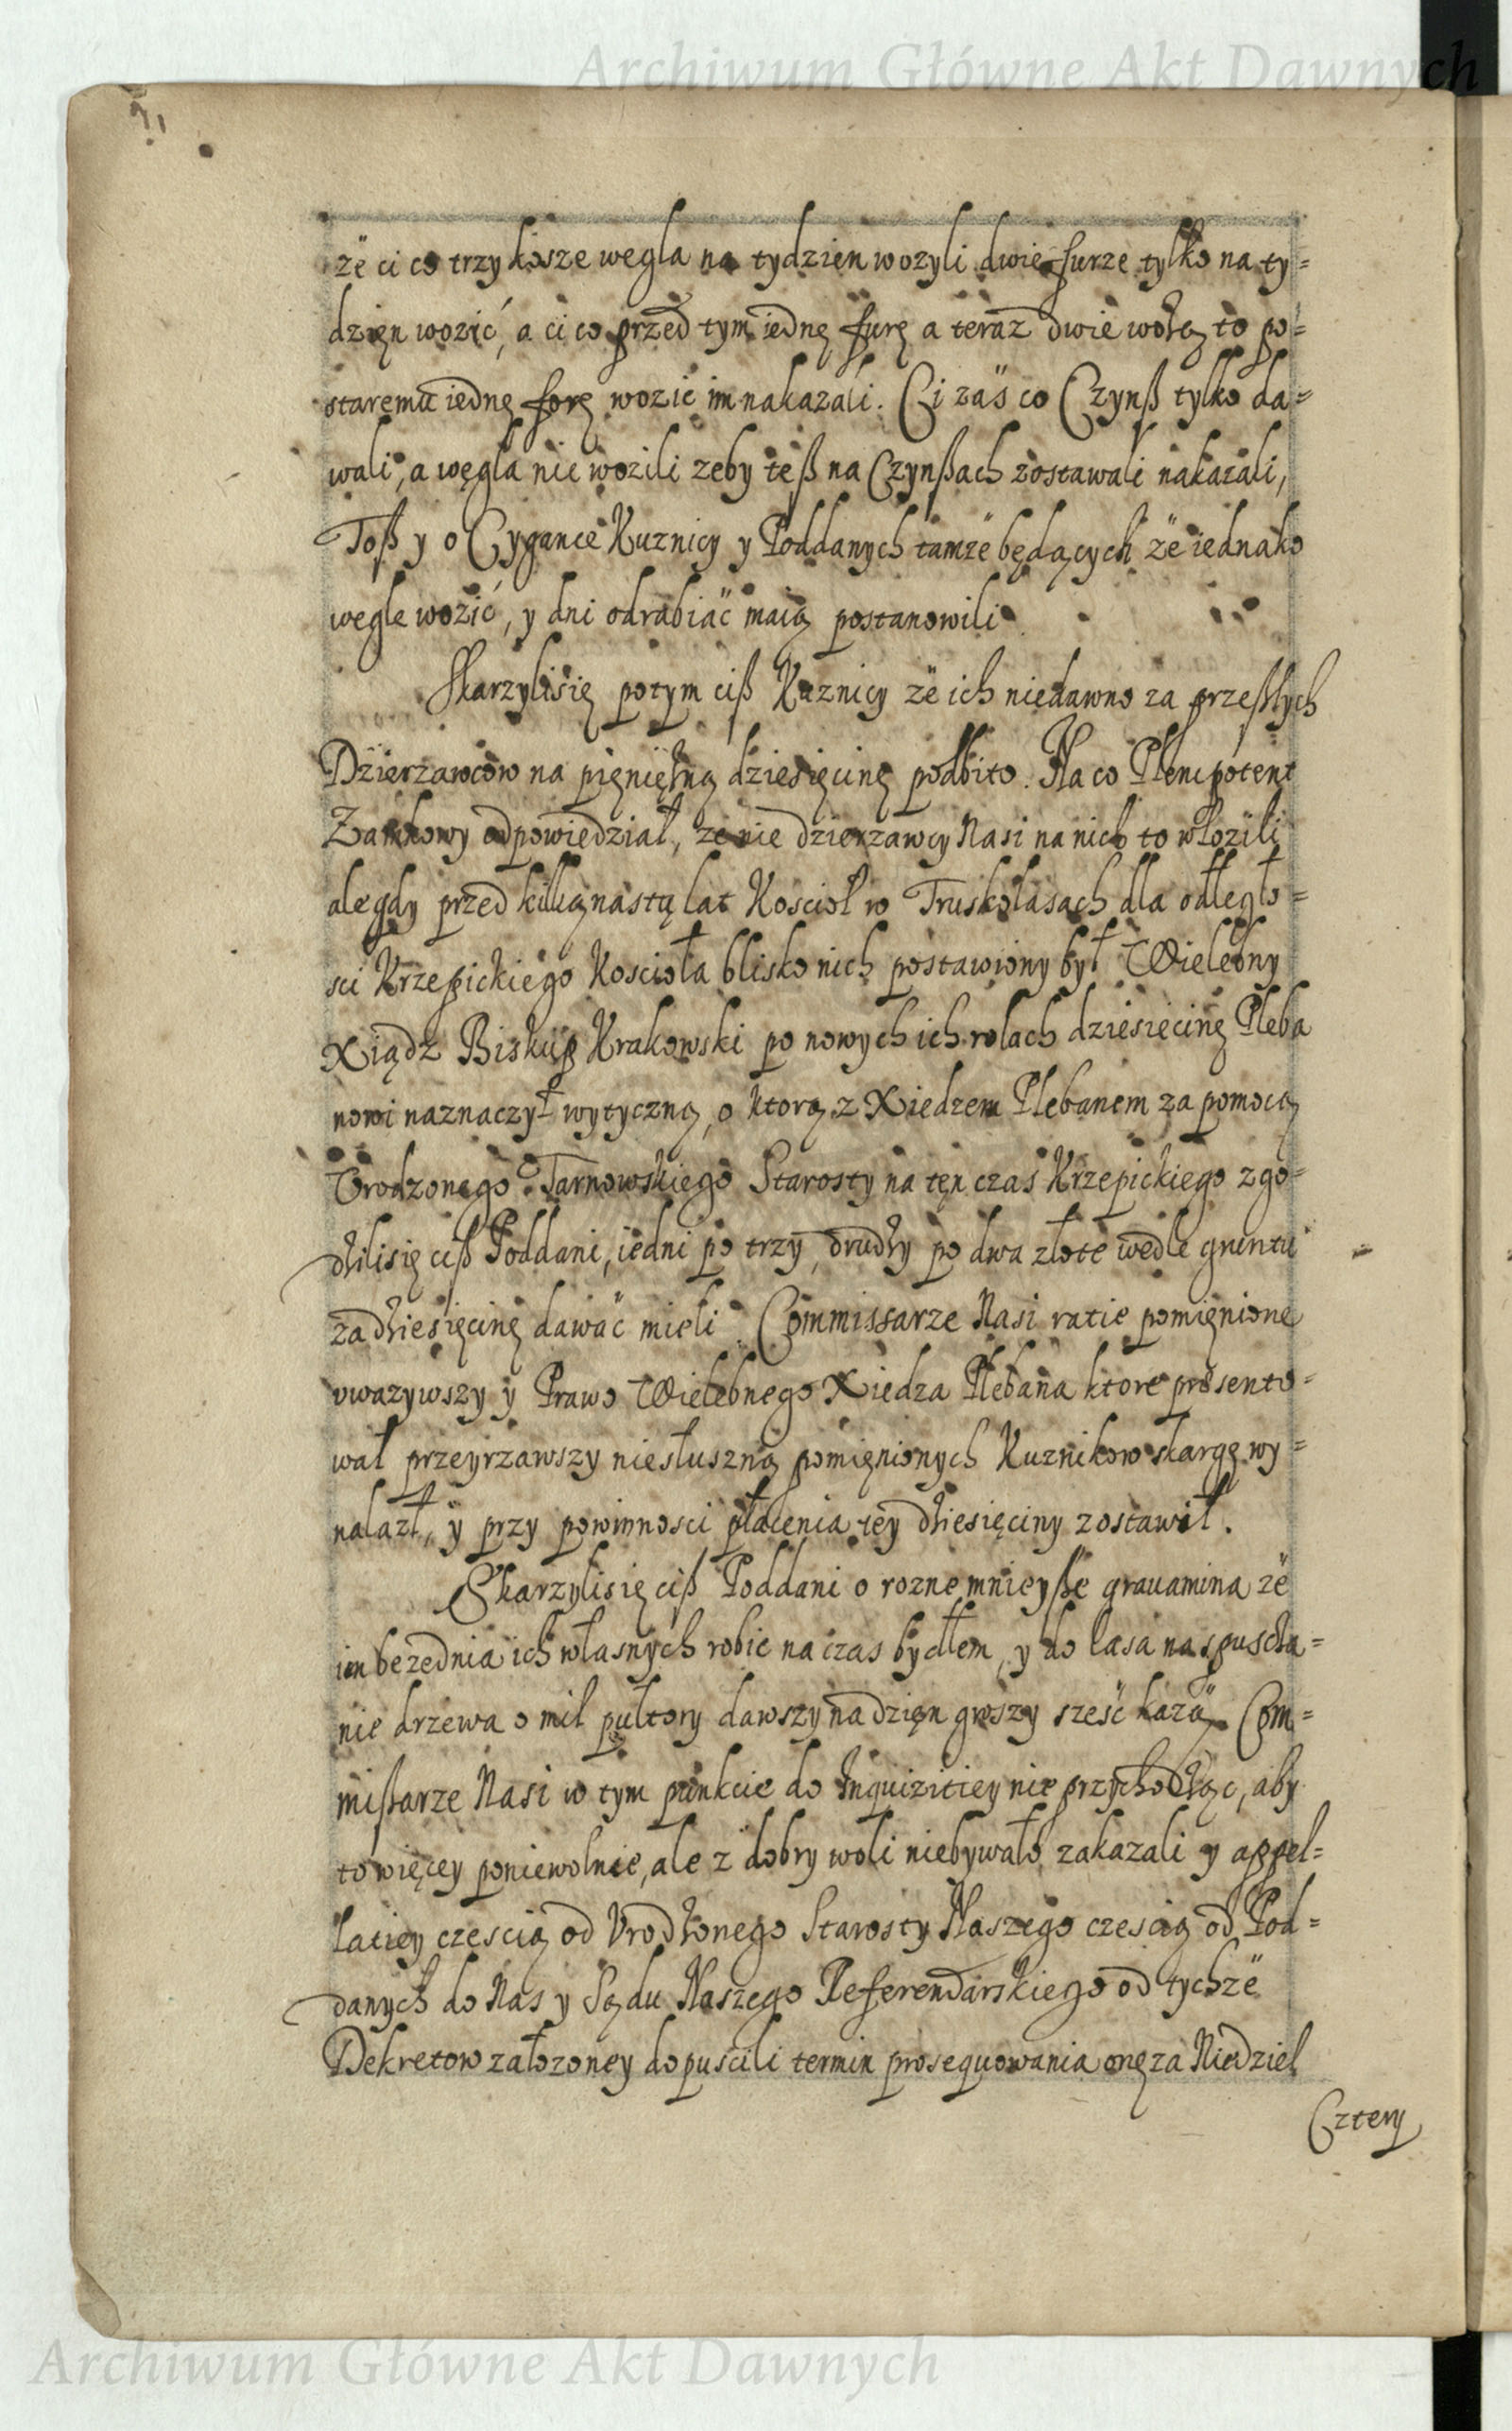 Archiwum Główne Akt Dawnych
że ci co trzy kosze wegla na tydzien wozyli dwie furze tylko na ty=
dzięn wozić, a ci co przed tym iednę furę a teraz dwie wożą to po=
staremu iednę forę wozic im nakazali. Ci zaś co Czynß tylko da=
wali, a węgla nie wozili zeby teß na Czynßach zostawali nakazali,
Toß y o Cygance Kuznicy y Poddanych tamże będących że iednako
wegle wozić, y dni odrabiać maią postanowili
Skarzylisię potym ciß Kuznicy że ich niedawno za przeßłych
Dzierzawcow na pięnięzną dziesięcinę podbito. Na co Plenipotent
Zamkowy odpowiedział, ze nie dzierzawcy Nasi na nich to włozili
ale gdy przed kilkąnastą lat Kosciół w Truskolasach dla odległo=
sci Krzepickiego Kościoła blisko nich postawiony był Wielebny
Xiądz Biskup Krakowski po nowych ich rolach dziesięcinę Pleba
nowi naznaczył wytyczną, o ktorą z Xiedzem Plebanem za pomocą
Vrodzonego Tarnowskiego Starosty na tęn czas Krzepickiego zgo=
dzilisię ciß Poddani, iedni po trzy, drudzy po dwa złote wedle gruntu
za dziesięcinę dawać mieli. Commissarze Nasi ratie pomięnione
vwazywszy y Prawo Wielebnego Xiedza Plebana ktore prěsento=
wał przeyrzawszy niesłuszną pomięnionych Kuznikow skargę wy=
nalazł, y przy powinnosci płacenia tey dziesięciny zostawił.
Skarzylisię ciß Poddani o rozne mnieyße grauamina że
im bezednia ich własnych robic na czas bydłem, y do lasa na spuscza=
nie drzewa o mil pułtory dawszy na dzięn groszy sześć każą. Com=
mißarze Nasi w tym punkcie do Inquizitiey nie przychodząc, aby
to więcey poniewolnie, ale z dobry woli niebywało zakazali y appel=
latiey czescią od Vrodzonego Starosty Naszego czescią od Pod=
danych do Nas y Sądu Naszego Referendarskiego od tychże
Dekretow załozoney dopuscili termin prosequowania onęza Niedziel
Cztery
Archiwum Główne Akt Dawnych